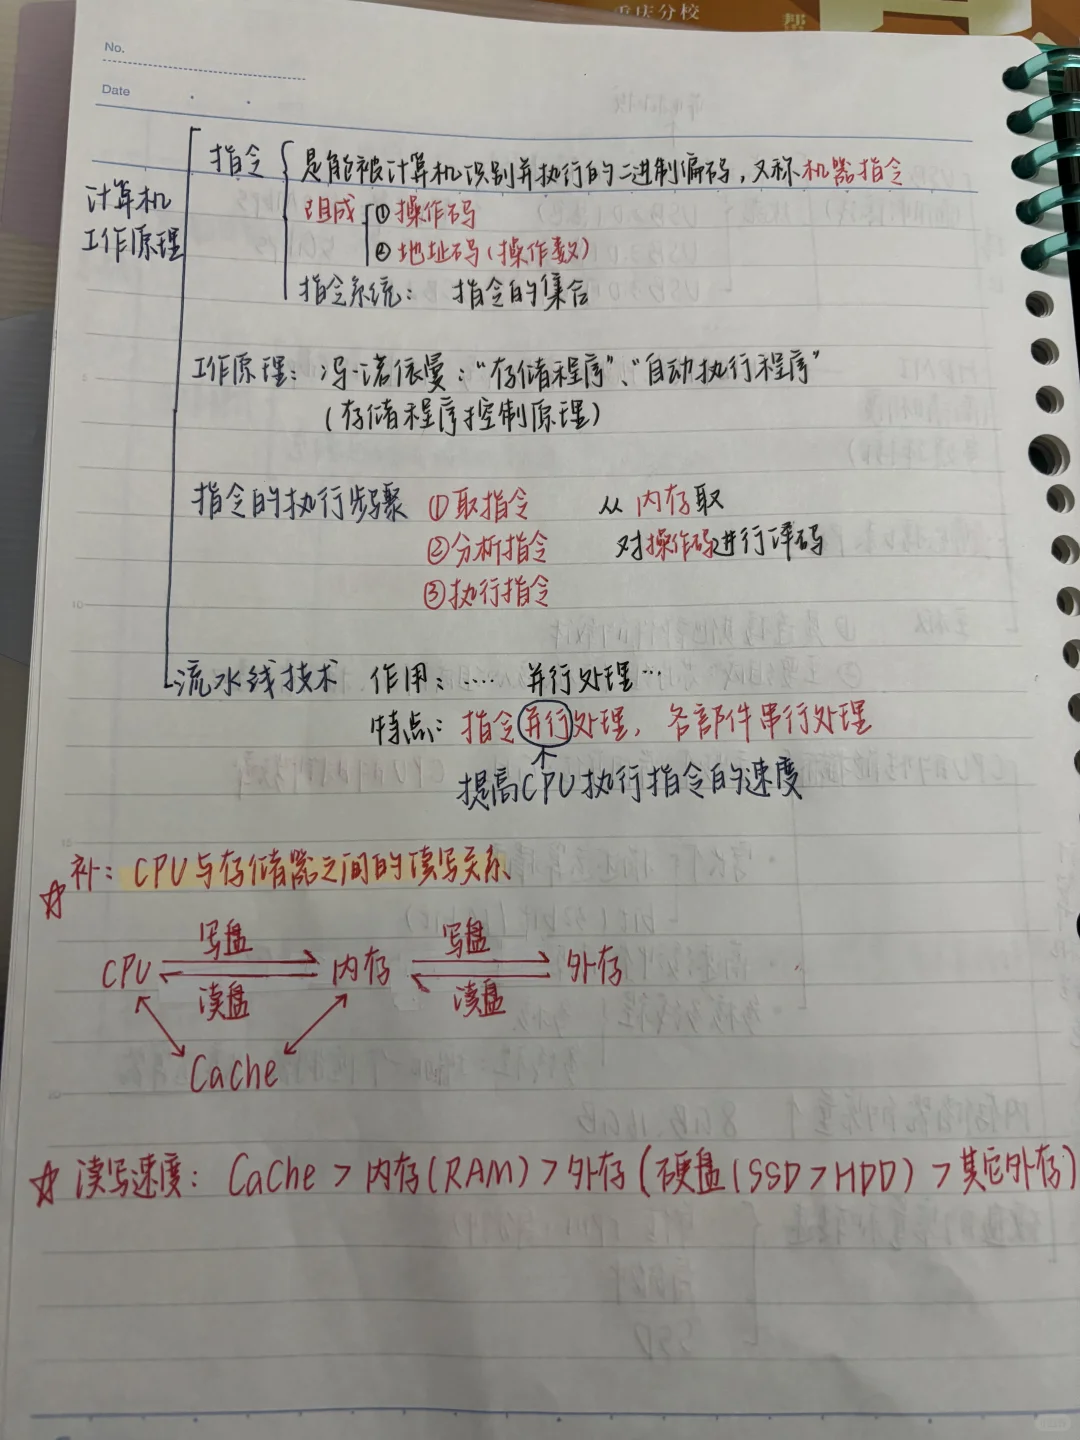 重庆分校
帮
No.
Date
计算机
工作原理
指令
是能被计算机识别并执行的二进制编码,又称机器指令
组成 ①操作码
②地址码(操作数)
指令系统: 指令的集合
工作原理: 冯·诺依曼:“存储程序”、“自动执行程序”
(存储程序控制原理)
指令的执行步骤 ①取指令 从内存取
②分析指令 对操作码进行译码
③执行指令
流水线技术 作用:…… 并行处理…
特点: 指令并行处理, 各部件串行处理
提高CPU执行指令的速度
☆补: CPU与存储器之间的读写关系
写盘 写盘
CPU 内存 外存
读盘 读盘
Cache
☆读写速度: Cache > 内存(RAM) > 外存(硬盘(SSD>HDD) > 其它外存)